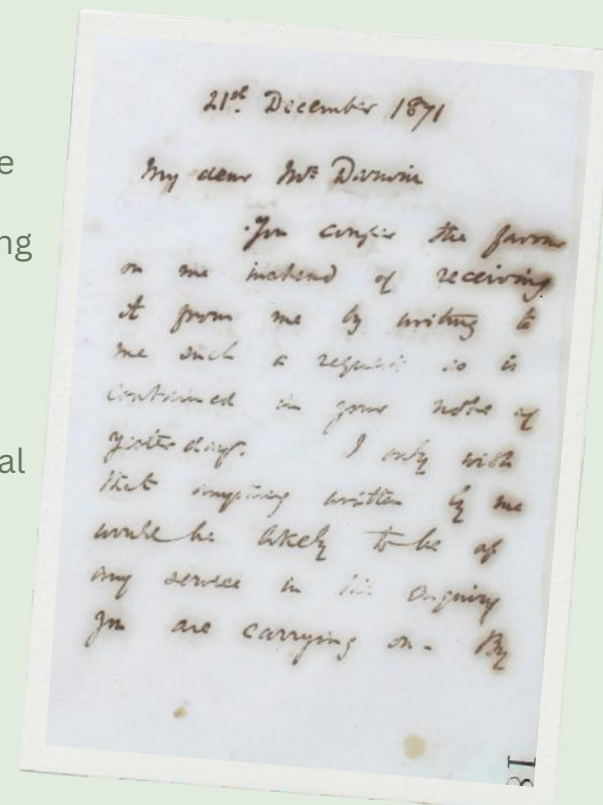 e
ng
al
21st December 1871
My dear Mr Darwin
You confer the favour
on me instead of receiving
it from me by writing to
me such a request as is
contained in your note of
yesterday. I only wish
that anything written by me
would be likely to be of
any service in the enquiry
you are carrying on - By
31